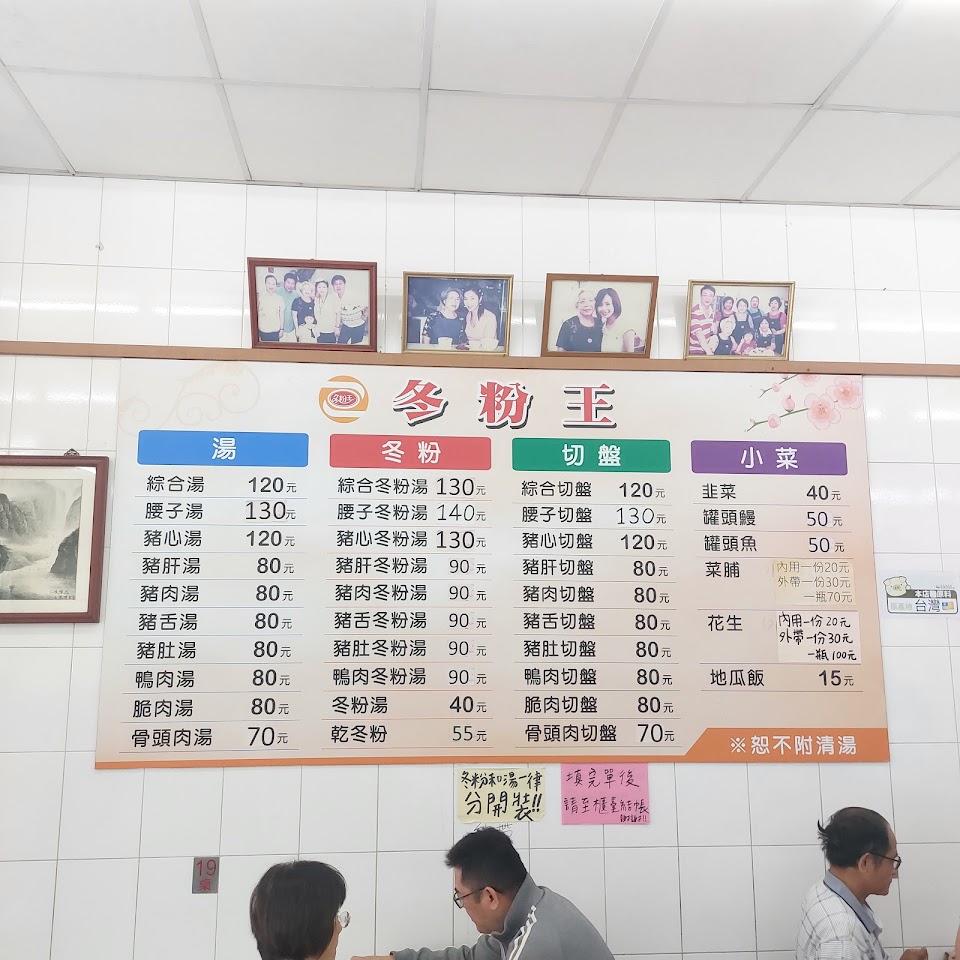 冬粉王
湯
綜合湯 120元
腰子湯 130元
豬心湯 120元
豬肝湯 80元
豬肉湯 80元
豬舌湯 80元
豬肚湯 80元
鴨肉湯 80元
脆肉湯 80元
骨頭肉湯 70元
冬粉
綜合冬粉湯 130元
腰子冬粉湯 140元
豬心冬粉湯 130元
豬肝冬粉湯 90元
豬肉冬粉湯 90元
豬舌冬粉湯 90元
豬肚冬粉湯 90元
鴨肉冬粉湯 90元
冬粉湯 40元
乾冬粉 55元
切盤
綜合切盤 120元
腰子切盤 130元
豬心切盤 120元
豬肝切盤 80元
豬肉切盤 80元
豬舌切盤 80元
豬肚切盤 80元
鴨肉切盤 80元
脆肉切盤 80元
骨頭肉切盤 70元
小菜
韭菜 40元
罐頭鰻 50元
罐頭魚 50元
菜脯 內用一份20元
外帶一份30元
一瓶70元
花生 內用一份20元
外帶一份30元
一瓶100元
地瓜飯 15元
※恕不附清湯
冬粉和湯一律
分開裝!!
填完單後
請至櫃臺結帳
謝謝!!
19
桌
台灣